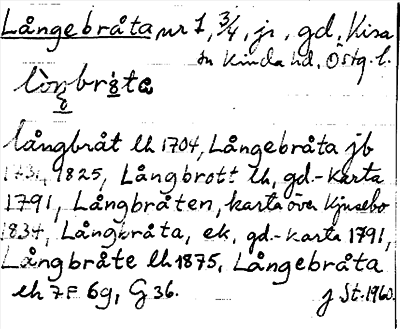 Långebråta, nr 1, 3/4, jr, gd, Kisa
sn Kinda hd, Östg. l.
lòŋbrå̀ta
Långbråt lh 1704, Långebråta jb
1731, 1825, Långbrott lh, gd.-karta
1791, Långbråten, karta över Kjusebo
1834, Långbråta, ek, gd.-karta 1791,
Långbråte lh 1875, Långebråta
eh 7F 6g, G 36.
J St. 1960.